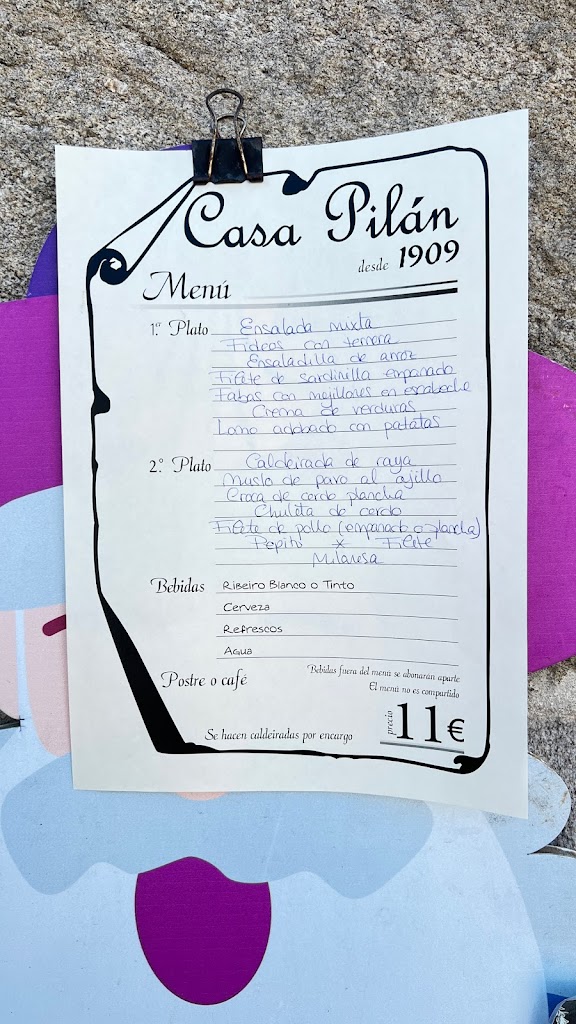 Casa Pilán
desde 1909
Menú
1.er Plato Ensalada mixta
Fideos con ternera
Ensaladilla de arroz
Filete de sardinilla empanado
Fabas con mejillones en escabeche
Crema de verduras
Lomo adobado con patatas
2.º Plato Caldeirada de raya
Muslo de pavo al ajillo
Croca de cerdo plancha
Chuleta de cerdo
Filete de pollo (empanado o plancha)
Pepito x Filete
Milanesa
Bebidas Ribeiro Blanco o Tinto
Cerveza
Refrescos
Agua
Postre o café
Bebidas fuera del menú se abonarán aparte
El menú no es compartido
precio 11€
Se hacen caldeiradas por encargo